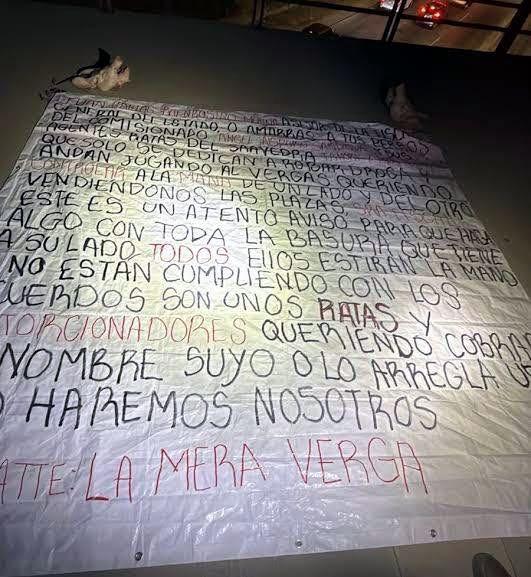 ASESOR DE LA
GENERAL DEL ESTADO, O AMARRAS A TUS PERROS
DEL COMISIONADO
AGENTES RATAS DEL
QUE SOLO SE DEDICAN A ROBAR DROGA Y
ANDAN JUGANDO AL VERGAS QUERIENDO
CONTROLAR A LA MAÑA DE UN LADO Y DEL OTRO
VENDIENDONOS LAS PLAZAS
ESTE ES UN ATENTO AVISO PARA QUE HAGA
ALGO CON TODA LA BASURA QUE TIENE
A SU LADO TODOS EllOS ESTIRAN LA MANO
NO ESTAN CUMPLIENDO CON LOS
CUERDOS SON UNOS RATAS Y
TORCIONADORES QUERIENDO COBRAR
NOMBRE SUYO O LO ARREGLA
O HAREMOS NOSOTROS
ATTE: LA MERA VERGA